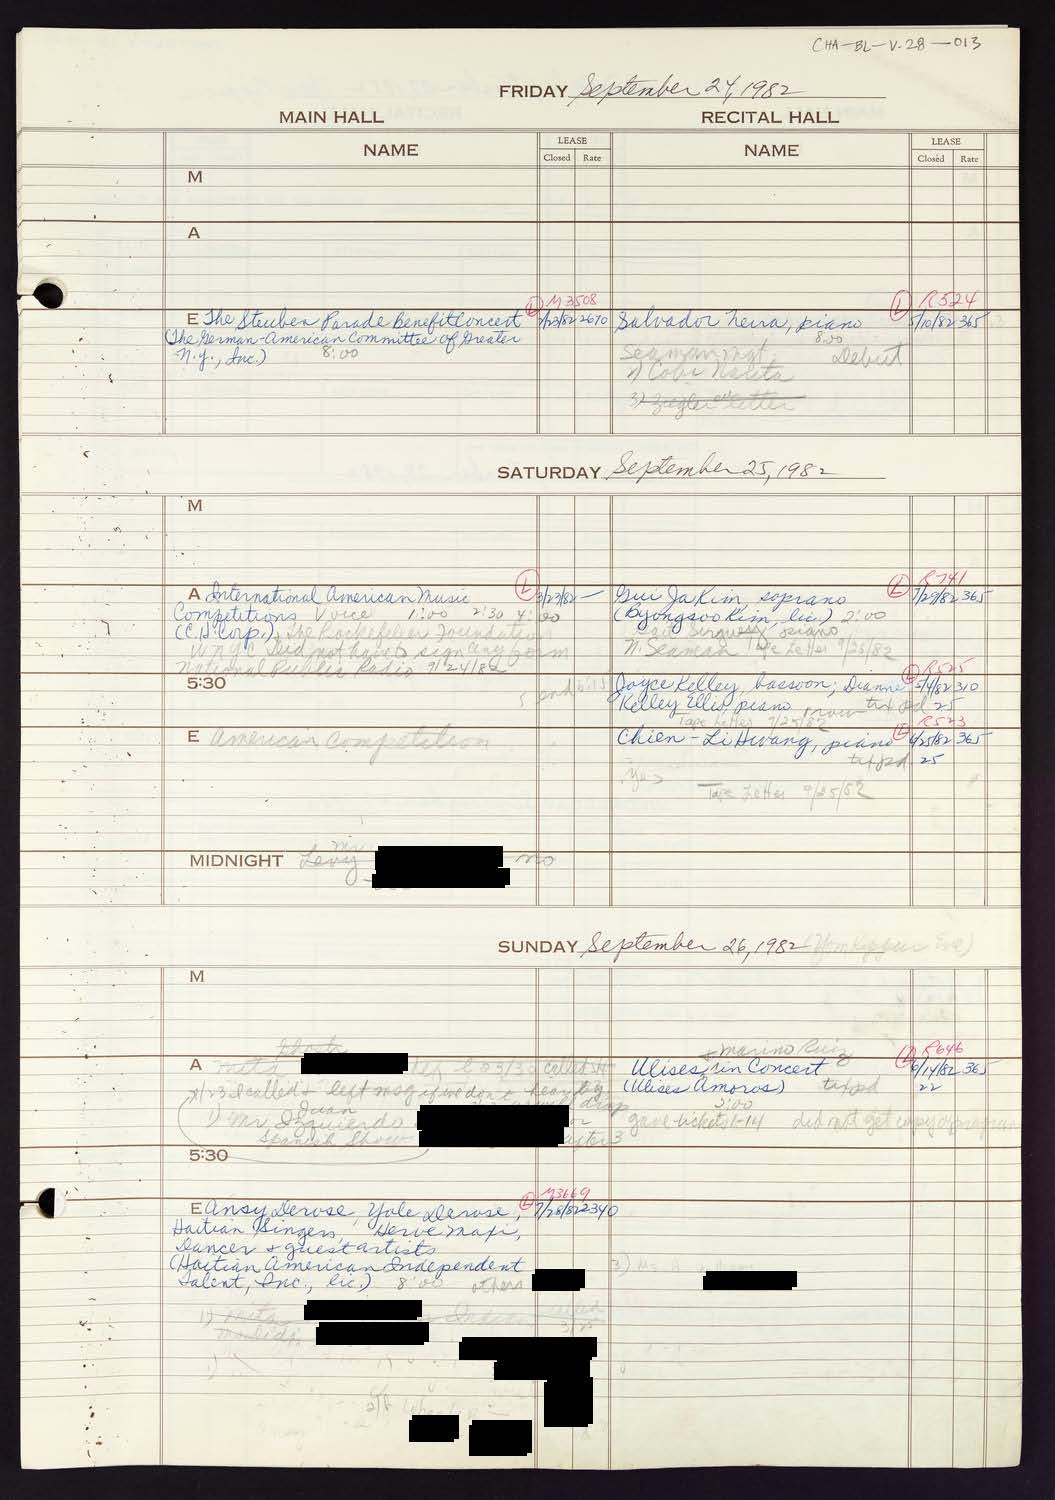 CHA-BL-V.28-013
FRIDAY September 24, 1982
MAIN HALL RECITAL HALL
NAME LEASE NAME LEASE
Closed Rate Closed Rate
M
A
L M3508 L R524
E The Steuben Parade Benefit Concert 2670 Salvador Neira, piano 5/10/82 365
(The German-American Committee of Greater 8:00
N.Y., Inc.) 8:00 Seaman Mgt. Debut
2) Cobi Narita
3) Ziegler letter
SATURDAY September 25, 1982
M
L L R741
A International American Music 3/23/82 — Gui Ja Kim, soprano 7/29/82 365
Competitions Voice 1:00 2:30 4:00 (Byongsoo Kim, lic.) 2:00
(C.H. Corp.) The Rockefeller Foundation piano
WNYC did not have to sign any form N. Seaman Tape Letter 9/25/82
National Public Radio 9/24/82
L R525
5:30 Joyce Kelley, bassoon; Dianne 5/4/82 310
Kelley Ellis, piano txt pd 25
Tape Letter 9/25/82
L R523
E American Competition Chien-Li Hwang, piano 365
txt pd 25
yes
Tape Letter 9/25/82
MIDNIGHT Levy no
SUNDAY September 26, 1982 (Yom Kippur Eve)
M
+ Marino Ruiz L R646
A Ulises in Concert 6/14/82 365
called + left msg if we don't hear by (Ulises Amoros) txt pd 22
Juan drop 2:00
1) Mr. Izquierdo gave tickets 1-14 did not get copy of program
Spanish Show after 3
5:30
L M3669
E Ansy Derose, Yole Derose, 7/28/82 2340
Haitian Singers, Herve Maxi,
Dancer + guest artists
(Haitian American Independent
Talent, Inc., lic.) 8:00 others 3)
1) called